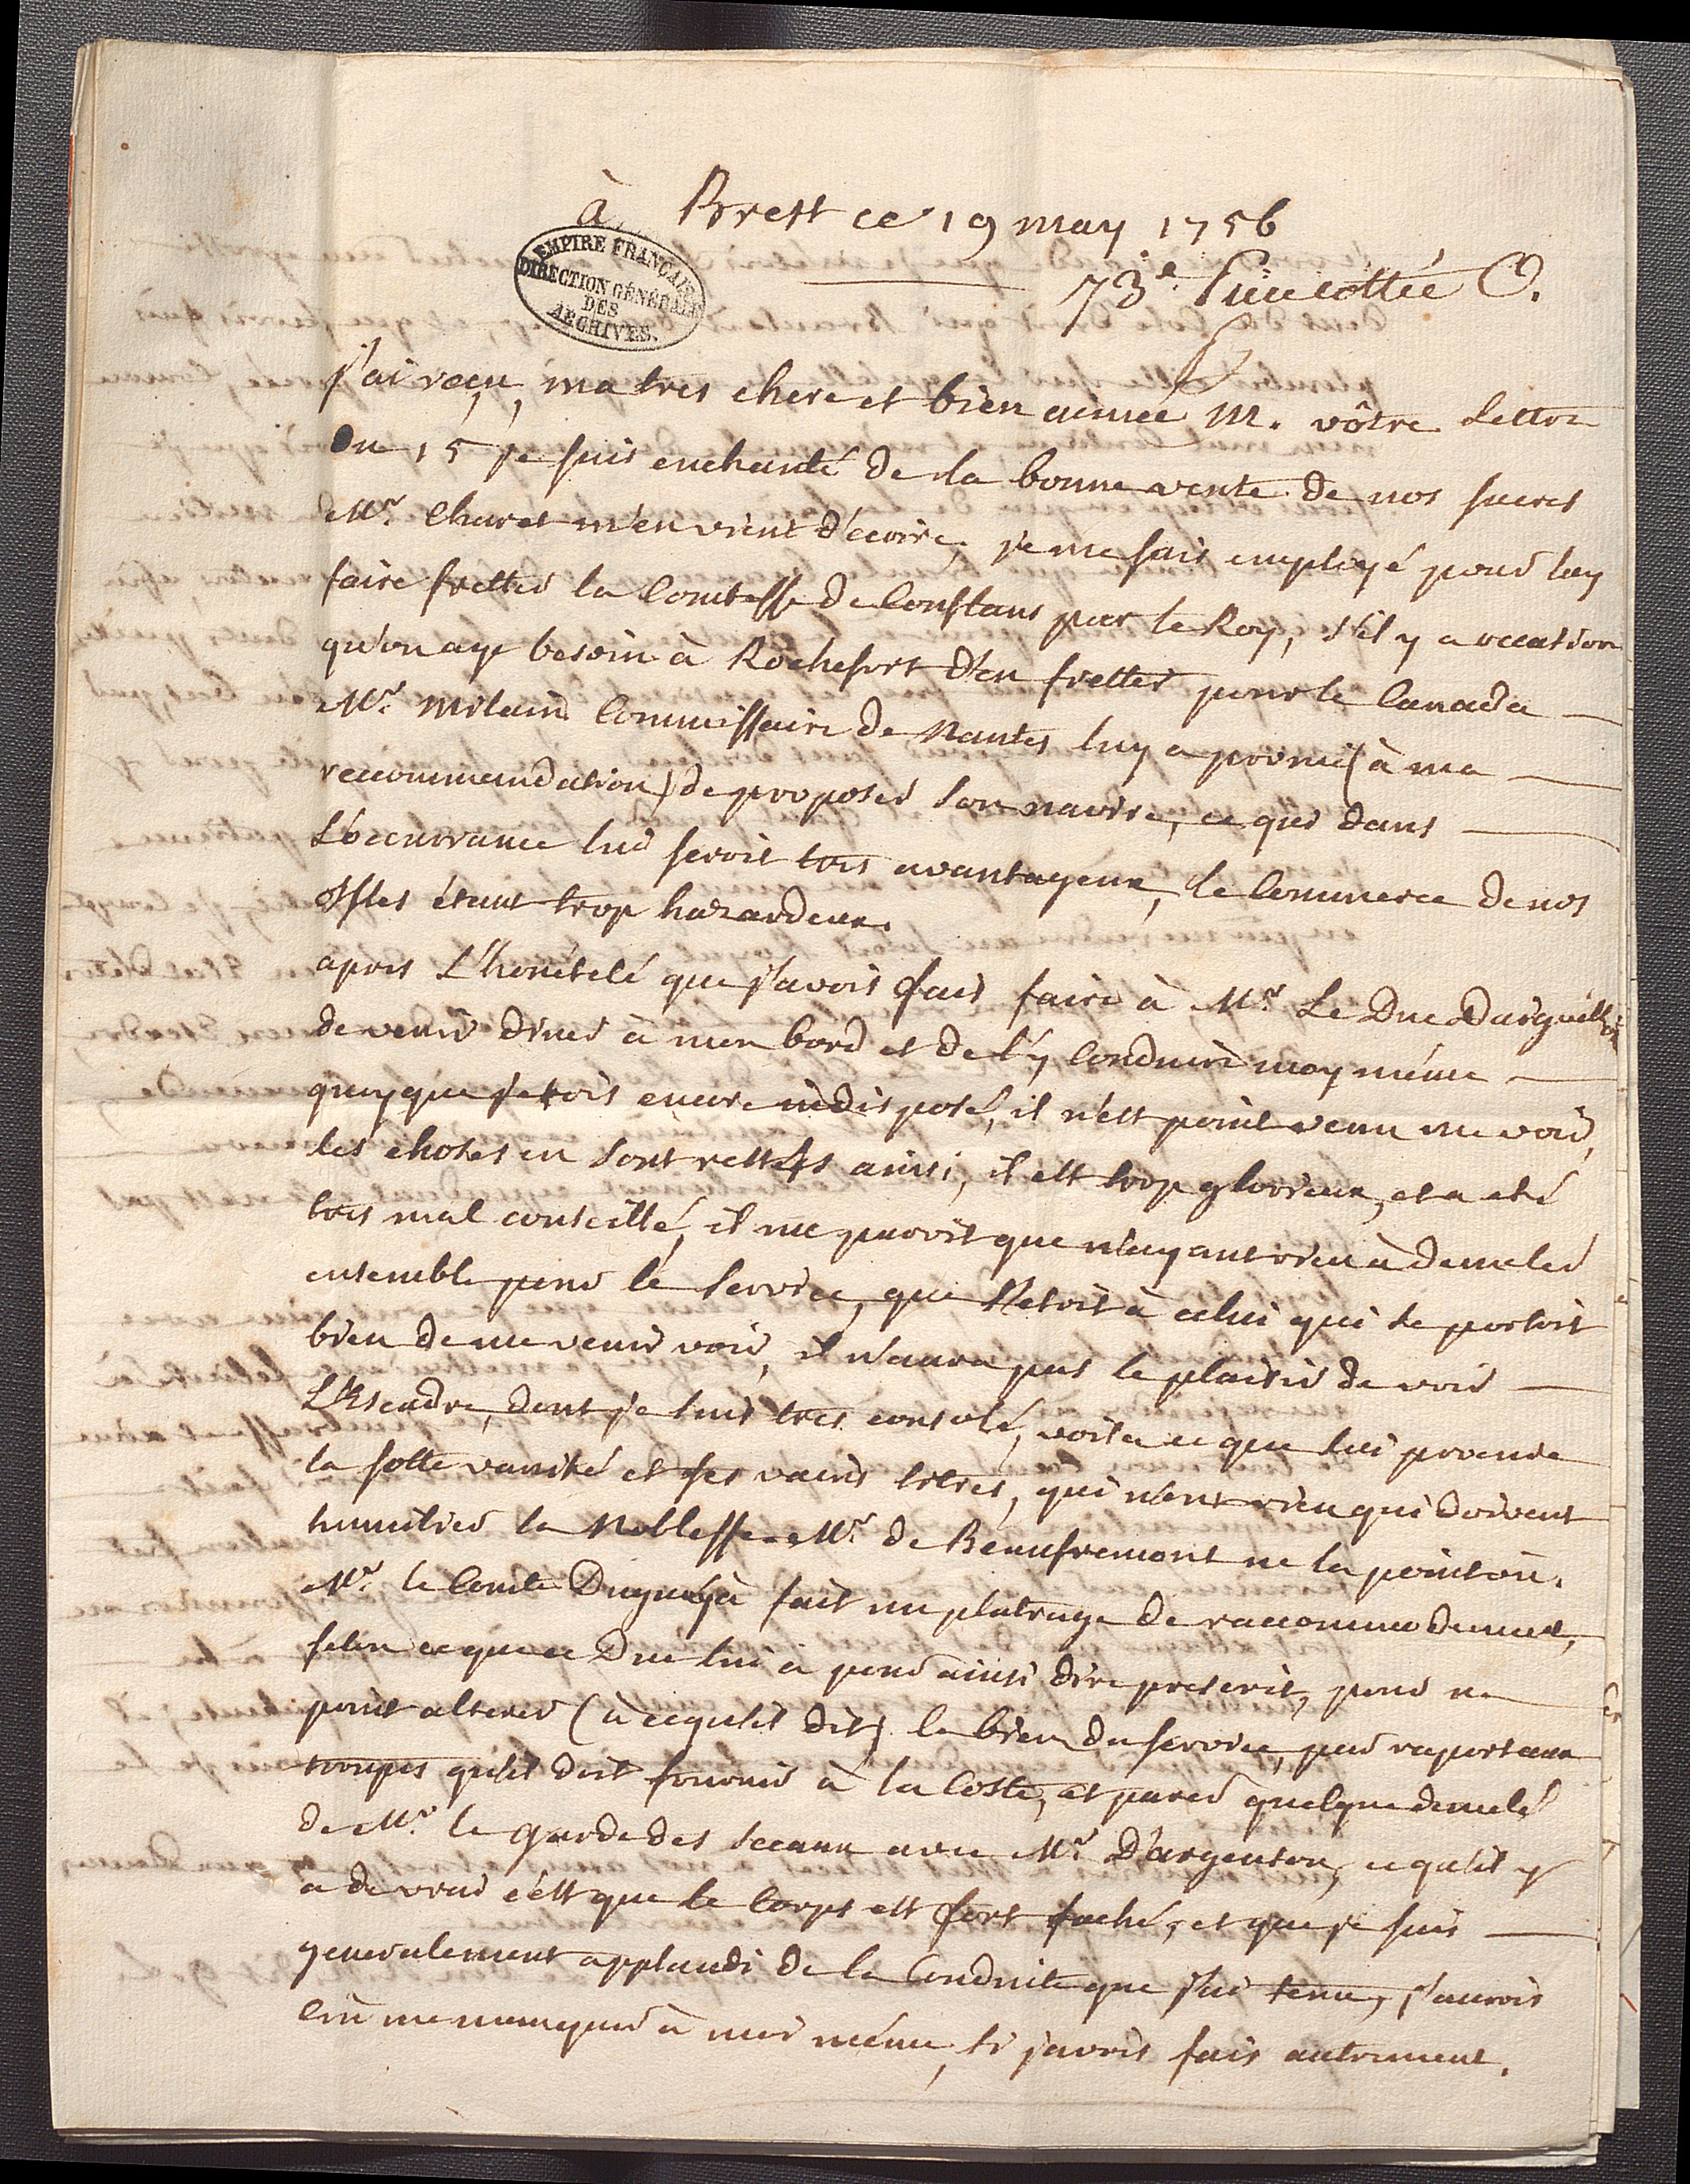 à Brest ce 19 may 1756
EMPIRE FRANÇAIS
DIRECTION GÉNÉRALE
DES
ARCHIVES.
73e. Piece cottée O.
j'ai reçu, ma tres chere et bien aimée M. vôtre Lettre
du 15 je suis enchanté de la bonne vente de nos sucres
Mr. Charet m'en vient d'ecrire, je me suis employé pour luy
faire fretter la Comtesse de Conflans par le Roy, s'il y a occasion
qu'on aye besoin à Rochefort d'en fretter pour le Canada
Mr. Milain Commissaire de Nantes luy a promis (à ma
recommendation) de proposer son navire, ce qui dans
L'occurrance lui seroit tres avantageux, le Commerce de nos
Isles étant trop hazardeux.
apres L'honêteté que j'avois fait faire à Mr. Le Duc Daiguillon
de venir diner à mon bord et de l'y Conduire moy même
quoyque j'etois encore indisposé, il n'est point venu me voir,
les choses en sont restées ainsi, il est trop glorieux, et a eté
tres mal conseillé, il me paroit que n'ayant rien à demeler
ensemble pour le service, que c'etoit à celui qui se portoit
bien de me venir voir, il n'aura pas le plaisir de voir
L'Escadre, dont je suis tres consolé, voila ce que lui procure
sa sotte vanité et ses vains titres, qui n'ont rien qui doivent
humilier la Noblesse. Mr. de Beaufremont ne la point vû.
Mr. le Comte Duguay à fait un platrage de raccommodement,
selon ce que ce Duc lui à pour ainsi dire prescrit, pour ne
point alterer (à ce qu'il dit) le bien du service, par raport aux
troupes qu'il doit fournir à la Coste, et parer quelque demelé
de Mr. le garde des sceaux avec Mr. D'argenson, ce qu'il y
a de vrai c'est que le Corps est fort faché, et que je suis
generalement applaudi de la Conduite que j'ai tenu, j'aurois
crû me manquer à moi même, si j'avois fait autrement.